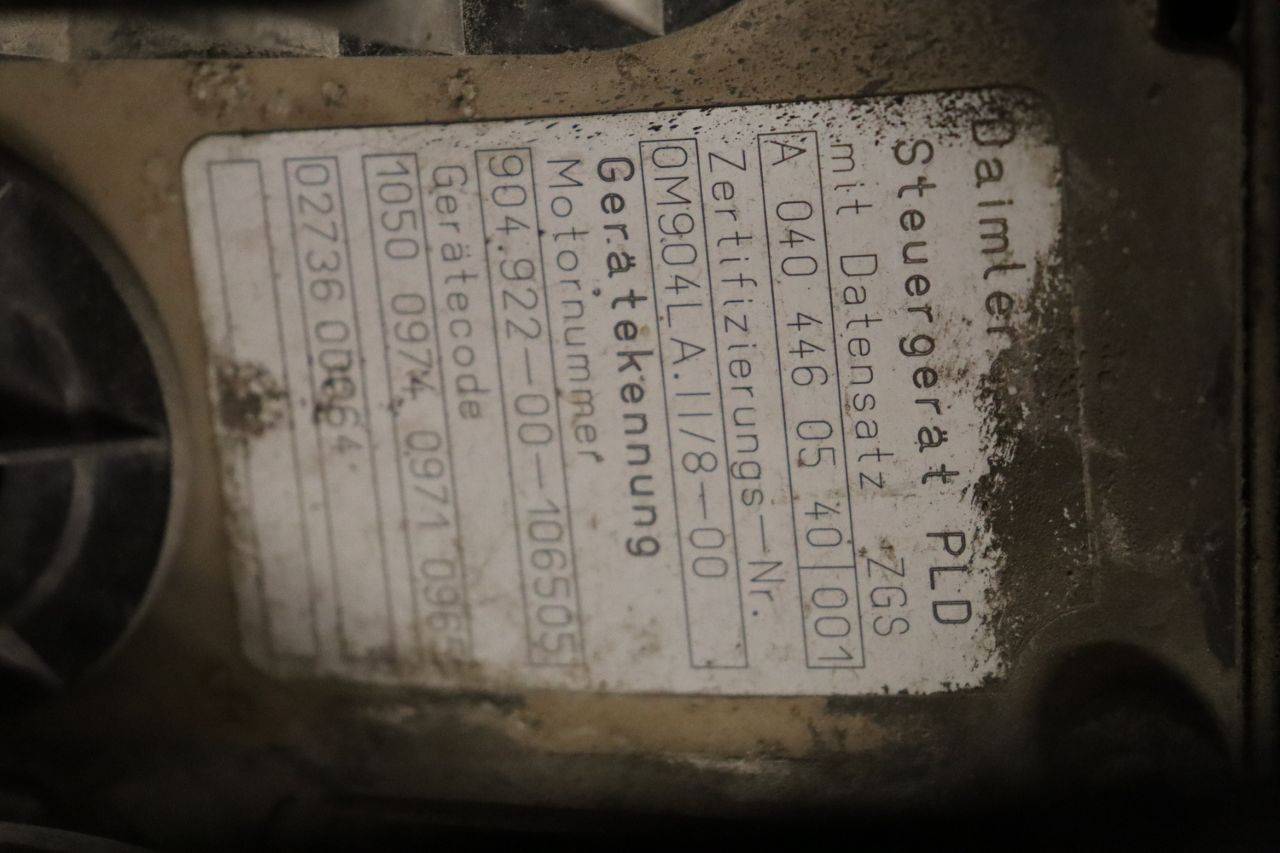 Daimler
Steuergerät PLD
mit Datensatz ZGS
A 040 446 05 40 001
Zertifizierungs-Nr.
OM904LA.II/8-00
Gerätekennung
Motornummer
904.922-00-106505
Gerätecode
1050 0974 0971
02736